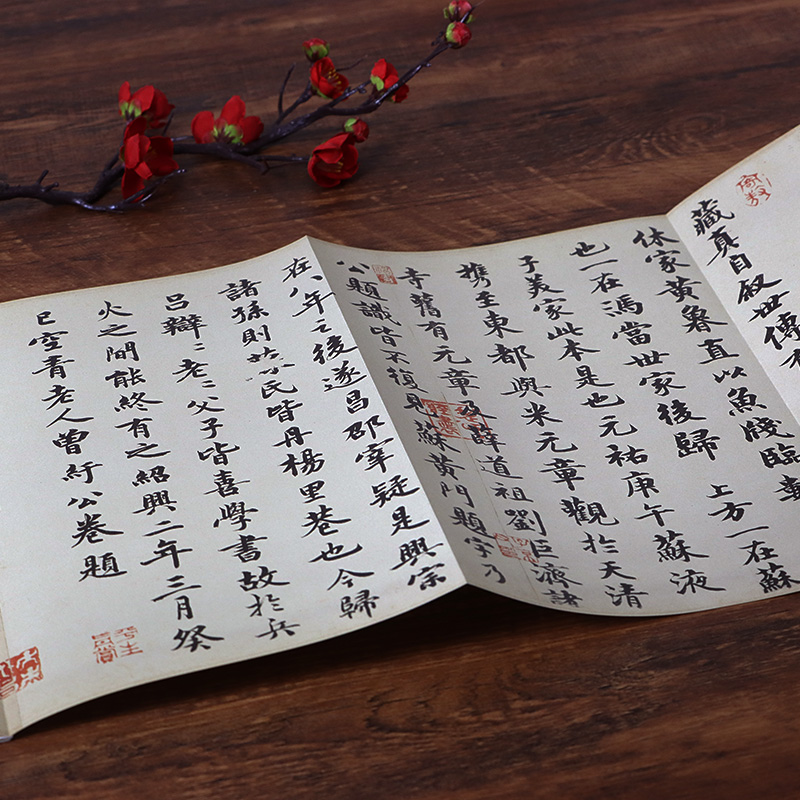 藏真自叙世傳有
休家黃魯直以魚牋臨數
也一在馮當世家後歸 上方一在蘇
子美家此本是也元祐庚午蘇液
携至東都與米元章觀於天清
寺舊有元章及薛道祖劉巨濟諸
公題識皆不復見蘇黃門題字乃
在八年之後遂昌邵宰疑是興宗
諸孫則蘇氏皆丹楊里巷也今歸
呂辯〻老〻父子皆喜學書故於兵
火之間能終有之紹興二年三月癸
巳空青老人曾紆公卷題